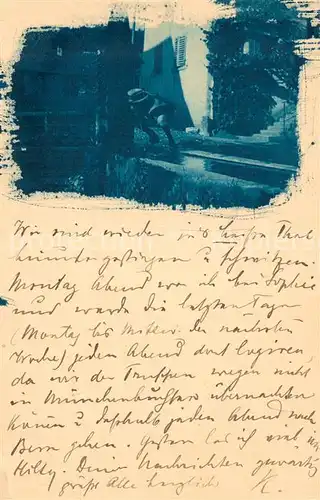 Wir sind wieder in's heisse Thal
hinunter gestiegen u schwitzen.
Montag Abend war ich bei Sophie
und werde die letzten Tage
(Montag bis Mittwo. der nächsten
Woche) jeden Abend dort logiren,
da wir der Truppen wegen nicht
in Münchenbuchsee übernachten
können u deshalb jeden Abend nach
Bern gehen. Gestern las ich viel im
Hilty. Deine Nachrichten gewärtig
grüßt Alle herzlich K.